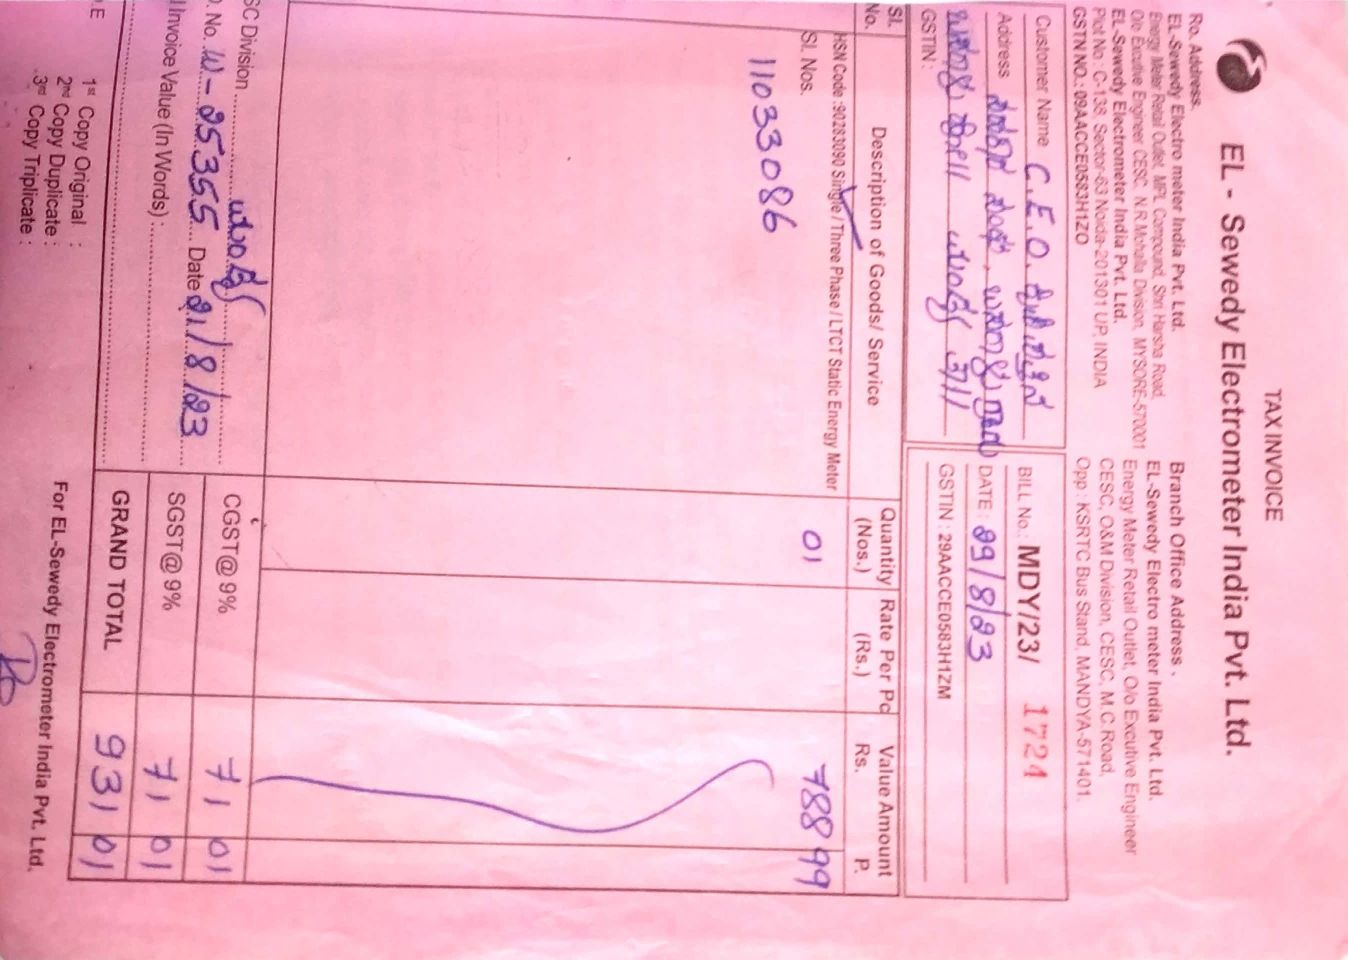 TAX INVOICE
EL - Sewedy Electrometer India Pvt. Ltd.
Ro. Address.
EL-Sewedy Electro meter India Pvt. Ltd.
Energy Meter Retail Outlet, MPL Compound, Shri Harsha Road,
O/o Executive Engineer CESC, N.R.Mohalla Division, MYSORE-570001
EL-Sewedy Electrometer India Pvt. Ltd.
Plot No : C-138, Sector-63 Noida-201301 UP, INDIA
GSTN NO. : 09AACCE0583H1ZO
Branch Office Address .
EL-Sewedy Electro meter India Pvt. Ltd.
Energy Meter Retail Outlet, O/o Excutive Engineer
CESC, O&M Division, CESC, M.C.Road,
Opp : KSRTC Bus Stand, MANDYA-571401.
Customer Name C.E.O.
Address
GSTIN :
BILL No.: MDY/23/ 1724
DATE : 29/8/23
GSTIN : 29AACCE0583H1ZM
Sl. No. Description of Goods/ Service Quantity (Nos.) Rate Per Pc (Rs.) Value Amount Rs. P.
HSN Code :90283090 Single / Three Phase / LTCT Static Energy Meter
Sl. Nos. 01 788 99
11033086
SC Division ಮಂಡ್ಯ CGST@9% 71 01
. No. 25355 Date 21/8/23 SGST@9% 71 01
l Invoice Value (In Words) : GRAND TOTAL 931 01
For EL-Sewedy Electrometer India Pvt. Ltd.
.E
1st Copy Original :
2nd Copy Duplicate :
3rd Copy Triplicate :